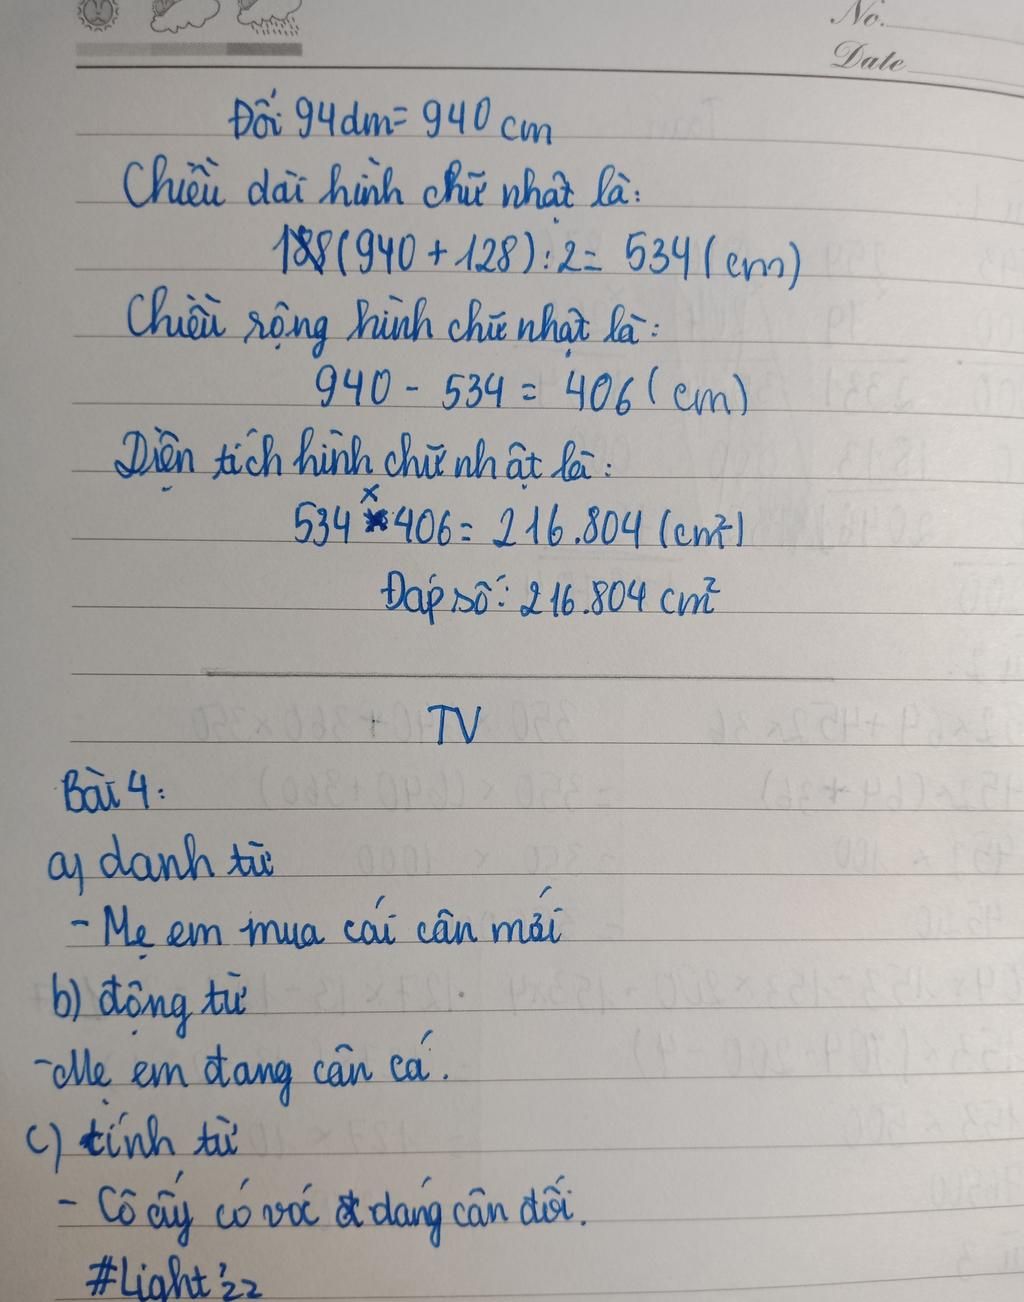 No.
Date
Đổi 94dm = 940 cm
Chiều dài hình chữ nhật là:
(940 + 128) : 2 = 534 (cm)
Chiều rộng hình chữ nhật là:
940 - 534 = 406 (cm)
Diện tích hình chữ nhật là:
534 x 406 = 216.804 (cm²)
Đáp số: 216.804 cm²
TV
Bài 4:
a) danh từ
- Mẹ em mua cái cân mới
b) động từ
- Mẹ em đang cân cá.
c) tính từ
- Cô ấy có vóc dáng cân đối.
#Light'22